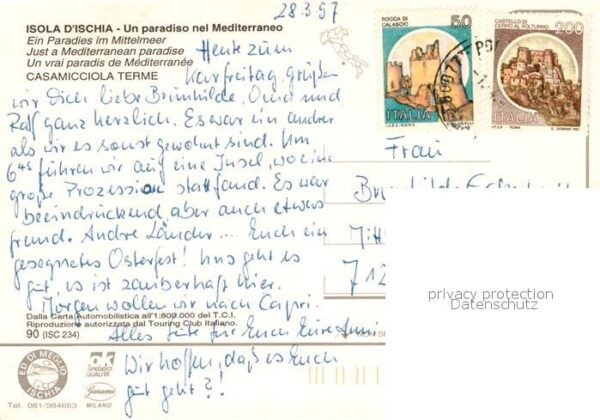 28.3.97
ISOLA D'ISCHIA - Un paradiso nel Mediterraneo
Ein Paradies im Mittelmeer
Just a Mediterranean paradise
Un vrai paradis de Méditerranée
CASAMICCIOLA TERME
Heute zum
Karfreitag grüßen
wir Dich liebe Brünhilde, und
Ralf ganz herzlich. Es war ein andrer
als wir es sonst gewohnt sind. Um
6⁴⁵ führen wir auf eine Insel, wo eine
große Prozession stattfand. Es war
beeindruckend, aber auch etwas
fremd. Andre Länder ... Euch ein
gesegnetes Osterfest! Uns geht es
gut, es ist zauberhaft hier.
Morgen wollen wir nach Capri.
Alles Gute für Euch Eure
Wir hoffen, daß es Euch
gut geht?!
Dalla Carta Automobilistica all'1:800.000 del T.C.I.
Riproduzione autorizzata dal Touring Club Italiano.
90 (ISC 234)
ED. DI MEGLIO
ISCHIA
Tel. 081/984663
SPEDISCI
QUALITÀ
Garami
MILANO
ROCCA DI
CALASCIO
50
ITALIA
I.P.Z.S. - ROMA
CASTELLO DI
CERRO AL VOLTURNO
200
ITALIA
Frau
712
privacy protection
Datenschutz